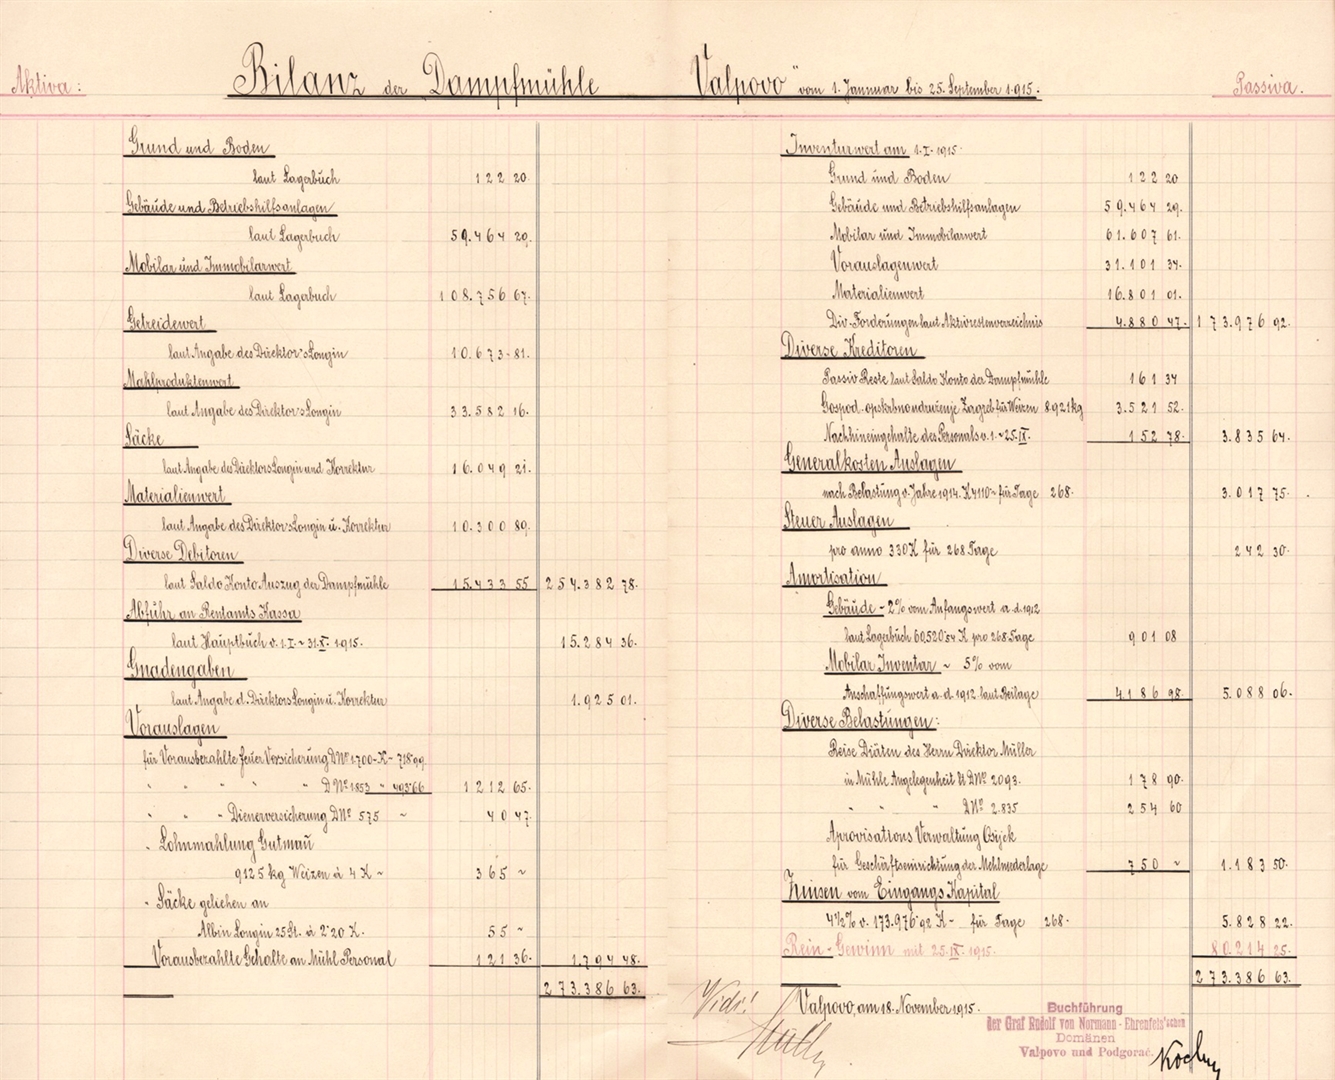 Aktiva:
Bilanz der „Dampfmühle Valpovo" vom 1. Jannuar bis 25. September 1915.
Passiva.
Grund und Boden
laut Lagerbuch 122 20.
Gebäude und Betriebshilfsanlagen
laut Lagerbuch 59.464 29.
Mobilar und Immobilarwert
laut Lagerbuch 108.756 67.
Getreidewert
laut Angabe des Direktor's Longin 10.673 81.
Mahlproduktenwert
laut Angabe des Direktor's Longin 33.582 16.
Säcke
laut Angabe des Direktors Longin und Korrektur 16.049 21.
Materialienwert
laut Angabe des Direktor's Longin u. Korrektur 10.300 89.
Diverse Debitoren
laut Saldo Konto Auszug der Dampfmühle 15.433 55 254.382 78.
Abfuhr an Rentamts Kassa
laut Hauptbuch v. 1.I. ~ 31.X. 1915. 15.284 36.
Gnadengaben
laut Angabe d. Direktors Longin u. Korrektur 1.925 01.
Vorauslagen
für Vorausbezahlte Feuer Versicherung DNº 1700 - K - 718·99
" " " " " DNº 1853 " 493·66 1.212 65.
" " " Dienerversicherung DNº 575 ~ 40 47.
" Lohnmahlung Gutmaű
9125 kg Weizen à 4 K ~ 365 ~
" Säcke geliehen an
Albin Longin 25 St. à 2·20 K. 55 ~
Vorausbezahlte Gehalte an Mühl Personal 121 36. 1.794 48.
273.386 63.
Inventurwert am 1.I. 1915.
Grund und Boden 122 20
Gebäude und Betriebshilfsanlagen 59.464 29.
Mobilar und Immobilarwert 61.607 61.
Vorauslagenwert 31.101 34.
Materialienwert 16.801 01.
Div. Forderungen laut Aktivrestenverzeichnis 4.880 47. 173.976 92.
Diverse Kreditoren
Passiv Reste laut Saldo Konto der Dampfmühle 161 34
Gospod. opskrbno udruženje Zagreb für Weizen 8921 kg 3.521 52.
Nachhineingehalte des Personals v. 1. ~ 25.IX. 152 78. 3.835 64.
Generalkosten Auslagen
nach Belastung v. Jahre 1914. K 4110 ~ für Tage 268. 3.017 75.
Steuer Auslagen
pro anno 330 K für 268 Tage 242 30.
Amortisation
Gebäude - 2% vom Anfangswert a. d. 1912
laut Lagerbuch 60520·54 K pro 268 Tage 901 08
Mobilar Inventar ~ 5% vom
Anschaffungswert a. d. 1912 laut Beilage 4.186 98. 5.088 06.
Diverse Belastungen:
Reise Diäten des Herrn Direktor Müller
in Mühle Angelegenheit lt DNº 2093. 178 90.
" " " DNº 2.835 254 60
Aprovisations Verwaltung Osijek
für Geschäftseinrichtung der Mehlniederlage 750 ~ 1.183 50.
Zinsen vom Eingangs Kapital
4½% v. 173.976·92 K - für Tage 268. 5.828 22.
Rein-Gewinn mit 25.IX. 1915. 80.214 25.
273.386 63.
Vidi!
Valpovo, am 18. November 1915.
Buchführung
der Graf Rudolf von Normann-Ehrenfels'schen
Domänen
Valpovo und Podgorač.